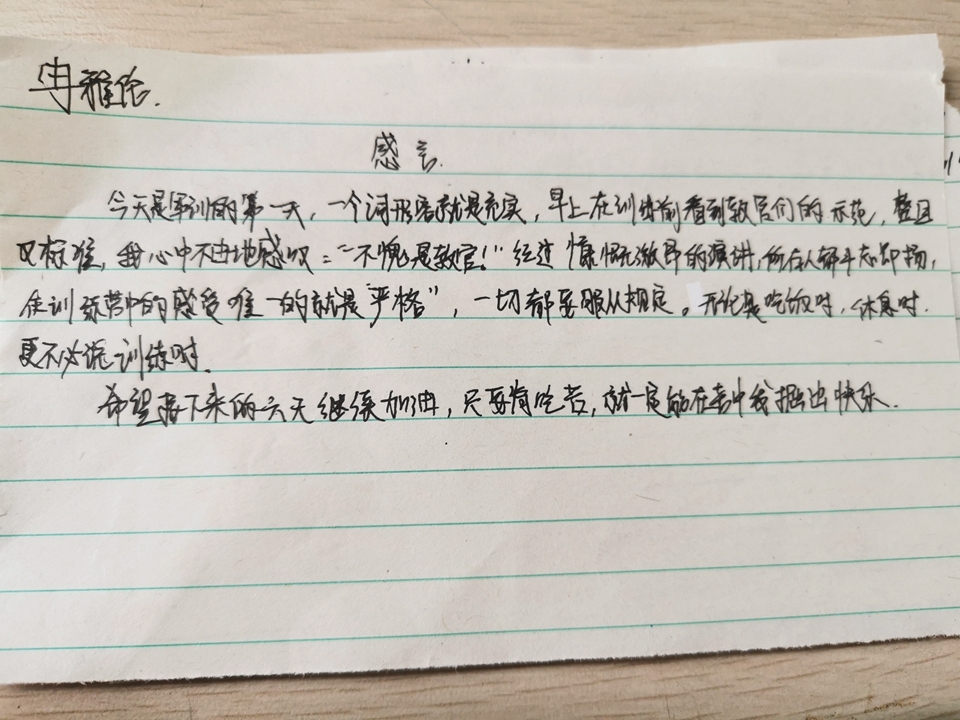 冉雅伦.
感言.
今天是军训的第一天，一个词形容就是充实，早上在训练前看到教官们的示范，整且
又标准，我心中不由地感叹："不愧是教官！"经过慷慨激昂的演讲，所有人都斗志昂扬，
在训练营中的感受唯一的就是"严格"，一切都要服从规定。无论是吃饭时，休息时.
更不必说训练时.
希望接下来的六天继续加油，只要肯吃苦，就一定能在苦中找掘出快乐.